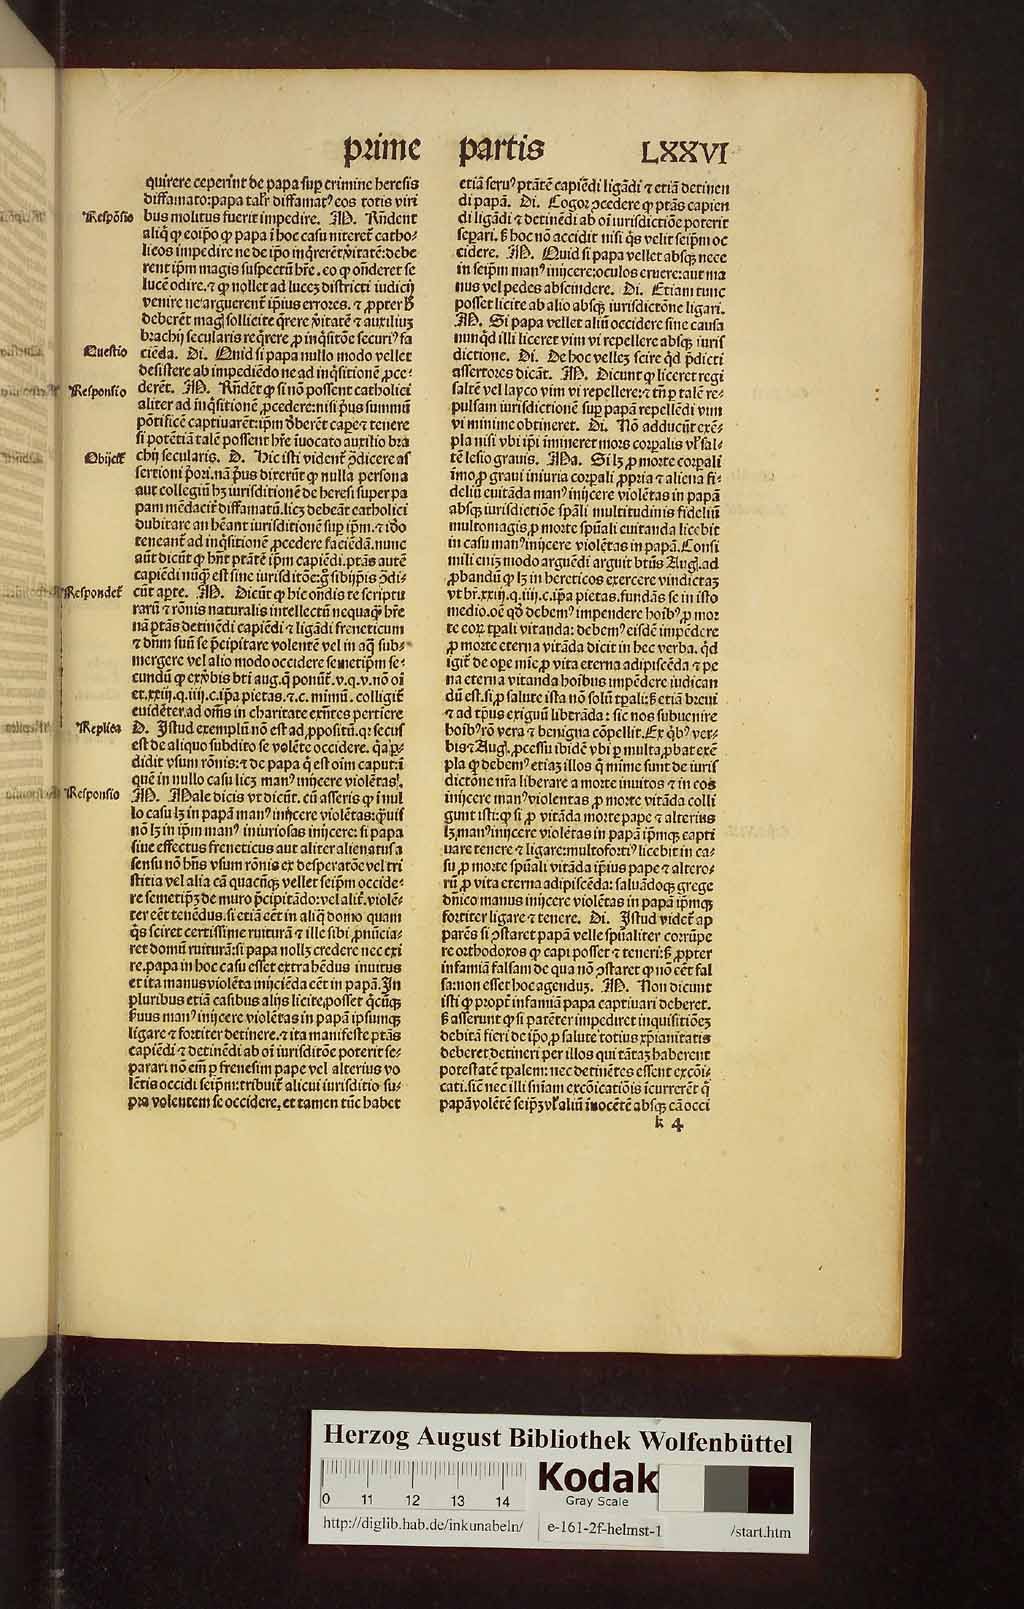 prime partis LXXVI
quirere ceperint de papa sup crimine heresis
diffamato: papa talr̄ diffamatꝰ eos totis viri
Respōsio
bus molitus fuerit impedire. M. Rn̄dent
aliq̄ ꝙ eoip̄o ꝙ papa ī hoc casu niteret̄ catho⸗
licos impedire ne de ip̄o inq̄rerēt v̄itatē: debe
rent ip̄m magis suspectū hr̄e. eo ꝙ on̄deret se
lucē odire. ⁊ ꝙ nollet ad lucez districti iudicij
venire ne arguerent̄ ip̄ius errores. ⁊ ꝓpter hͦ
deberēt magꝭ sollicite q̄rere v̄itatē ⁊ auxiliuꝫ
brachij secularis req̄rere ꝓ inq̄sitōe securiꝰ fa
Questio
ciēda. Di. Quid si papa nullo modo vellet
desistere ab impediēdo ne ad inq̄sitionē ꝓce⸗
Responsio
deret̄. M. Rn̄dēt̄ ꝙ si nō possent catholici
aliter ad inq̄sitionē ꝓcedere: nisi p̄us summū
pōtificē captiuarēt: ip̄m d̄berēt caꝑe ⁊ tenere
si potētiā talē possent hr̄e īuocato auxilio bra
Obijcit̄
chij secularis. D. Hic isti vident̄ ꝯ̄dicere as
sertioni p̄ori. nā p̄us dixerūt ꝙ nulla persona
aut collegiū hꝫ iurisditionē de heresi super pa
pam mēdacit̄ diffamatū. licꝫ debeāt catholici
dubitare an beāt iurisditionē sup ip̄m. ⁊ iō
teneant̄ ad inq̄sitionē ꝓcedere faciēdā. nunc
aūt dicūt ꝙ hn̄t ptātē ip̄m capiēdi. ptās autē
capiēdi nūq̄ est sine iurisditōe: gͦ sibijp̄is ꝯ̄di⸗
Respondet̄
cūt apte. M. Dicūt ꝙ hic on̄dis te scriptu
rarū ⁊ rōnis naturalis intellectū nequaq̄ hr̄e
nā ptās detinēdi capiēdi ⁊ ligādi freneticum
⁊ dn̄m suū se p̄cipitare volentē vel in aq̄ sub⸗
mergere vel alio modo occidere semetip̄m se⸗
cundū ꝙ ex v̄bis bti aug. q̄ ponūt̄. v. q. v. nō oī
et. xxiij. q. iiij. c. ip̄a pietas. ⁊. c. nimiū. colligit̄
euidēter. ad om̄s in charitate exn̄tes pertiere
Replica
D. Istud exemplū nō est ad ꝓpositū. q: secus
est de aliquo subdito se volēte occidere. q̄a ꝑ⸗
didit vsum rōnis: ⁊ de papa q̄ est oīm caput: ī
quē in nullo casu licꝫ manꝰ inijcere violētas.
Responsio
M. Male dicis vt dicūt. cū asseris ꝙ ī nul
lo casu lꝫ in papā manꝰ inijcere violētas: q̄uis
nō lꝫ in ip̄m manꝰ iniuriosas inijcere: si papa
siue effectus freneticus aut aliter alienatus a
sensu nō hn̄s vsum rōnis ex desperatōe vel tri
stitia vel alia cā quacūqꝫ vellet seip̄m occide⸗
re semetip̄ꝫ de muro p̄cipitādo: vel alit̄. violē⸗
ter eēt tenēdus. si etiā eēt in aliq̄ domo quam
q̄s sciret certissime ruiturā ⁊ ille sibi ꝓnūcia⸗
ret domū ruiturā: si papa nollꝫ credere nec exi
re. papa in hoc casu esset extrahēdus inuitus
et ita manus violēta inijciēda eēt in papā. In
pluribus etiā casibus alijs licite posset q̄cūqꝫ
ẜuus manꝰ inijcere violētas in papā ipsumqꝫ
ligare ⁊ fortiter detinere. ⁊ ita manifeste ptās
capiēdi ⁊ detinēdi ab oī iurisditōe poterit se⸗
parari nō em̄ p frenesim pape vel alterius vo
lētis occidi seip̄m: tribuit̄ alicui iurisditio su⸗
pra volentem se occidere, et tamen tūc habet
etiā seruꝰ ptātē capiēdi ligādi ⁊ etiā detinen
di papā. Di. Cogor ꝯcedere ꝙ ptās capien
di ligādi ⁊ detinēdi ab oī iurisdictiōe poterit
seꝑari. ẜ hoc nō accidit nisi q̄s velit seip̄m oc
cidere. M. Quid si papa vellet absqꝫ nece
in seip̄m manꝰ inijcere: oculos eruere: aut ma
nus vel pedes abscindere. Di. Etiam tunc
posset licite ab alio absqꝫ iurisdictōne ligari.
M. Si papa vellet aliū occidere sine causa
nunq̄d illi liceret vim vi repellere absqꝫ iuris
dictione. Di. De hoc vellez scire qd̄ p̄dicti
assertores dicāt. M. Dicunt ꝙ liceret regi
saltē vel layco vim vi repellere: ⁊ tn̄ p talē re⸗
pulsam iurisdictionē sup papā repellēdi vim
vi minime obtineret. Di. Nō adducūt exē⸗
pla nisi vbi ip̄i īmineret mors corꝑalis vl̓ sal⸗
tē lesio grauis. Ma. Si lꝫ ꝓ morte corꝑali
īmo ꝓ graui iniuria corꝑali ꝓpria ⁊ aliena fi⸗
deliū euitāda manꝰ inijcere violētas in papā
absqꝫ iurisdictiōe sp̄ali multitudinis fideliū
multomagis ꝓ morte sp̄uali euitanda licebit
in casu manꝰ inijcere violētas in papā. Consi
mili enī modo arguēdi arguit btūs Augꝰ. ad
ꝓbandū ꝙ lꝫ in hereticos exercere vindictaꝫ
vt hr̄. xxiij. q. iiij. c. ip̄a pietas. fundās se in isto
medio. oē qd̄ debemꝰ impendere hoībꝰ ꝓ mor
te corꝑ tp̄ali vitanda: debemꝰ eisdē impēdere
ꝓ morte eterna vitāda dicit in hec verba. q̄d
igit̄ de ope mīe ꝓ vita eterna adipiscēda ⁊ pe
na eterna vitanda hoībus impēdere iudican
dū est. si ꝓ salute ista nō solū tp̄ali: ẜ etiā breui
⁊ ad tp̄us exiguū liberāda: sic nos subuenire
hoībꝰ rō vera ⁊ benigna cōpellit. Ex q̄bꝰ ver⸗
bis ⁊ Augꝰ. ꝓcessu ibidē vbi p multa ꝓbat exē
pla ꝙ debemꝰ etiaꝫ illos q̄ mime sunt de iuris
dictōne nr̄a liberare a morte inuitos ⁊ in eos
inijcere manꝰ violentas ꝓ morte vitāda colli
gunt isti: ꝙ si ꝓ vitāda morte pape ⁊ alterius
lꝫ manꝰ inijcere violētas in papā ip̄mqꝫ capti
uare tenere ⁊ ligare: multofortiꝰ licebit in ca⸗
su ꝓ morte sp̄uali vitāda ip̄ius pape ⁊ altero⸗
rū ꝓ vita eterna adipiscēda: saluādoqꝫ grege
dn̄ico manus inijcere violētas in papā ip̄mqꝫ
fortiter ligare ⁊ tenere. Di. Istud videt̄ ap
parēs si ꝯstaret papā velle sp̄ualiter corrūpe
re orthodoxos ꝙ capi posset ⁊ teneri: ẜ ꝓpter
infamiā falsam de qua nō ꝯstaret ꝙ nō eēt fal
sa: non esset hoc agenduꝫ. M. Non dicunt
isti ꝙ propt̄ infamiā papa captiuari deberet.
ẜ asserunt ꝙ si patēter impediret inquisitiōeꝫ
debitā fieri de ip̄o, ꝓ salute totius xp̄ianitatis
deberet detineri per illos qui tātaꝫ haberent
potestatē tp̄alem: nec detinētes essent excōi⸗
cati. sic̄ nec illi snīam excōicatiōis īcurrerēt q̄
papā volētē seip̄ꝫ vl̓ aliū īnocētē absqꝫ cā occi
k 4
Herzog August Bibliothek Wolfenbüttel
0 11 12 13 14
Kodak
Gray Scale
http://diglib.hab.de/inkunabeln/ e-161-2f-helmst-1 /start.htm